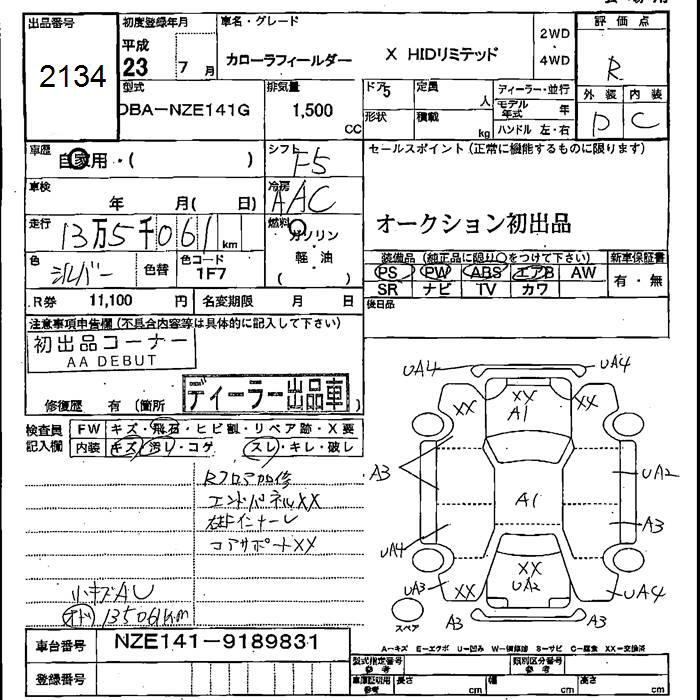 出品番号
2134
初度登録年月
平成
23 7 月
車名・グレード
カローラフィールダー X HIDリミテッド
2WD
・
4WD
評価点
R
外装 内装
D C
型式
DBA-NZE141G
排気量
1,500
CC
ドア 5
形状
定員 人
積載 kg
ディーラー・並行
モデル年式 年
ハンドル 左・右
車歴
自家用・( )
シフト
F5
車検
年 月( 日)
冷房
AAC
走行
13万5千061 km
燃料
ガソリン
軽・油
( )
色
シルバー
色替
色コード
1F7
R券 11,100 円
名変期限 月 日
セールスポイント(正常に機能するものに限ります)
オークション初出品
装備品(純正品に限り○をつけて下さい)
PS PW ABS エアB AW
SR ナビ TV カワ
新車保証書
有・無
後日品
注意事項申告欄(不具合内容等は具体的に記入して下さい)
初出品コーナー
AA DEBUT
ディーラー出品車
修復歴 有(箇所 )
検査員
記入欄
FW キズ・飛石・ヒビ割・リペア跡・X要
内装 キズ・汚レ・コゲ スレ・キレ・破レ
Rフロア加修
エンドパネルXX
コアサポートXX
小キズAU
135061km
UA4 UA4
XX XX XX
A1
A3
UA2
A1
A3
UA4
UA3
XX XX XX
UA2
UA4
A3 A3
スペア
A-キズ E-エクボ U-凹み W-補修跡 S-サビ C-腐食 XX-交換済
車台番号 NZE141-9189831
登録番号
型式指定番号
参考
類別区分番号
参考
車庫証明用
参考
長さ cm 幅 cm 高さ cm